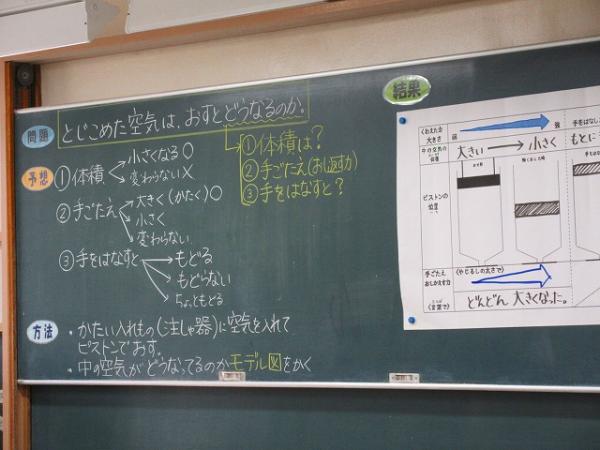 問題
とじこめた空気は、おすとどうなるのか。
①体積は?
②手ごたえ(おし返す力)
③手をはなすと?
予想
①体積
小さくなる○
変わらない×
②手ごたえ
大きく(かたく)○
小さく
変わらない
③手をはなすと
もどる
もどらない
ちょともどる
方法
・かたい入れもの(注しゃ器)に空気を入れて
ピストンでおす。
・中の空気がどうなってるのかモデル図をかく
結果
くわえた力
大きさ
弱
強
手をはなし
中の空気の
体積
大きい
小さく
もとに
ピストンの
位置
手ごたえ
おしかえす力
(やじるしの太さで)
(言葉で)
どんどん大きくなった。